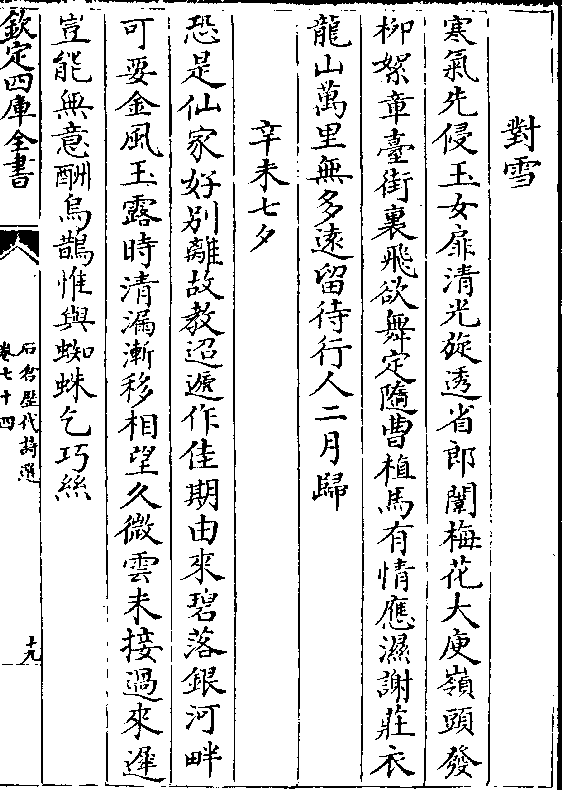 對雪
寒氣先侵玉女扉清光旋透省郎闈梅花大庾嶺頭發
柳絮章臺街裏飛欲舞定隨曹植馬有情應濕謝莊衣
龍山萬里無多遠留待行人二月歸
辛未七夕
恐是仙家好別離故教迢遞作佳期由來碧落銀河畔
可要金風玉露時清漏漸移相望久微雲未接過來遲
豈能無意酬烏鵲惟與蜘蛛乞巧絲
欽定四庫全書
石倉歷代詩選
卷七十四
十九